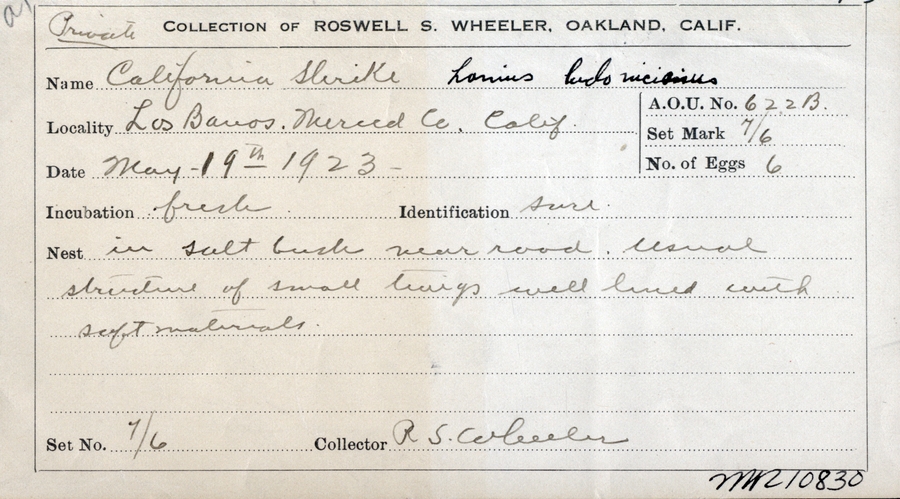 Private COLLECTION OF ROSWELL S. WHEELER, OAKLAND, CALIF.
Name California Shrike Lanius ludovicianus
A.O.U. No. 622B.
Locality Los Banos. Merced Co. Calif.
Set Mark 7/6
Date May-19th 1923-
No. of Eggs 6
Incubation fresh. Identification sure.
Nest in salt bush near road. Usual
structure of small twigs well lined with
soft materials.
Set No. 7/6 Collector R. S. Wheeler
10830